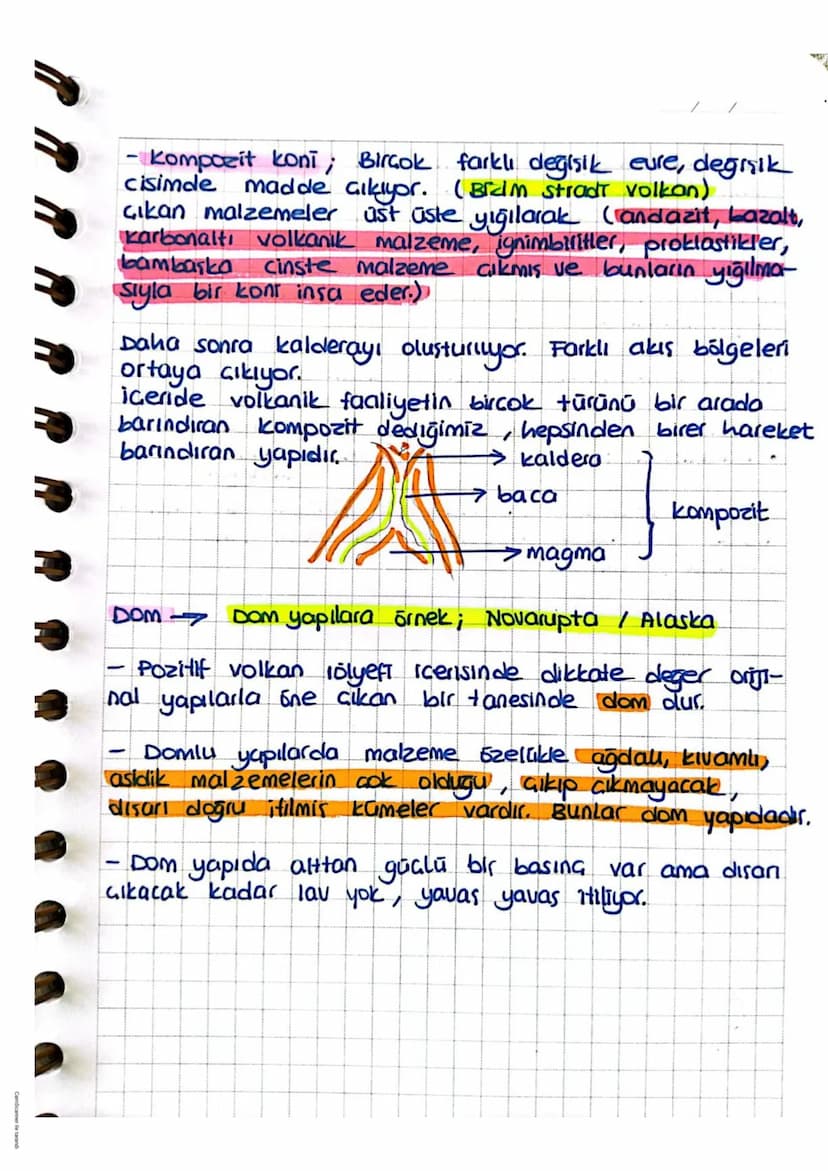 / /
- Kompozit koni ; Birçok farklı değişik evre, değişik
cisimde madde çıkıyor. (
volkan)
çıkan malzemeler üst üste yığılarak (andazit, bazalt,
karbonaltı volkanik malzeme, ignimbiritler, proklastikler,
bambaşka cinste malzeme çıkmış ve bunların yığılma-
sıyla bir koni inşa eder.)
Daha sonra kalderayı oluşturuyor. Farklı akış bölgeleri
ortaya çıkıyor.
içeride volkanik faaliyetin birçok türünü bir arada
barındıran kompozit dediğimiz , hepsinden birer hareket
barındıran yapıdır.
→ kaldera
→ baca
kompozit
→ magma
DOM → Dom yapılara örnek ; Novarupta / Alaska
- Pozitif volkan rölyefi içerisinde dikkate değer oriji-
nal yapılarla öne çıkan bir tanesinde dom olur.
- Domlu yapılarda malzeme özellikle ağdalı, kıvamlı,
asidik malzemelerin çok olduğu , çıkıp çıkmayacak ,
dışarı doğru itilmiş kümeler vardır. Bunlar dom yapıdadır.
- Dom yapıda alttan güçlü bir basınç var ama dışarı
çıkacak kadar lav yok , yavaş yavaş itiliyor.
CamScanner ile tarandı